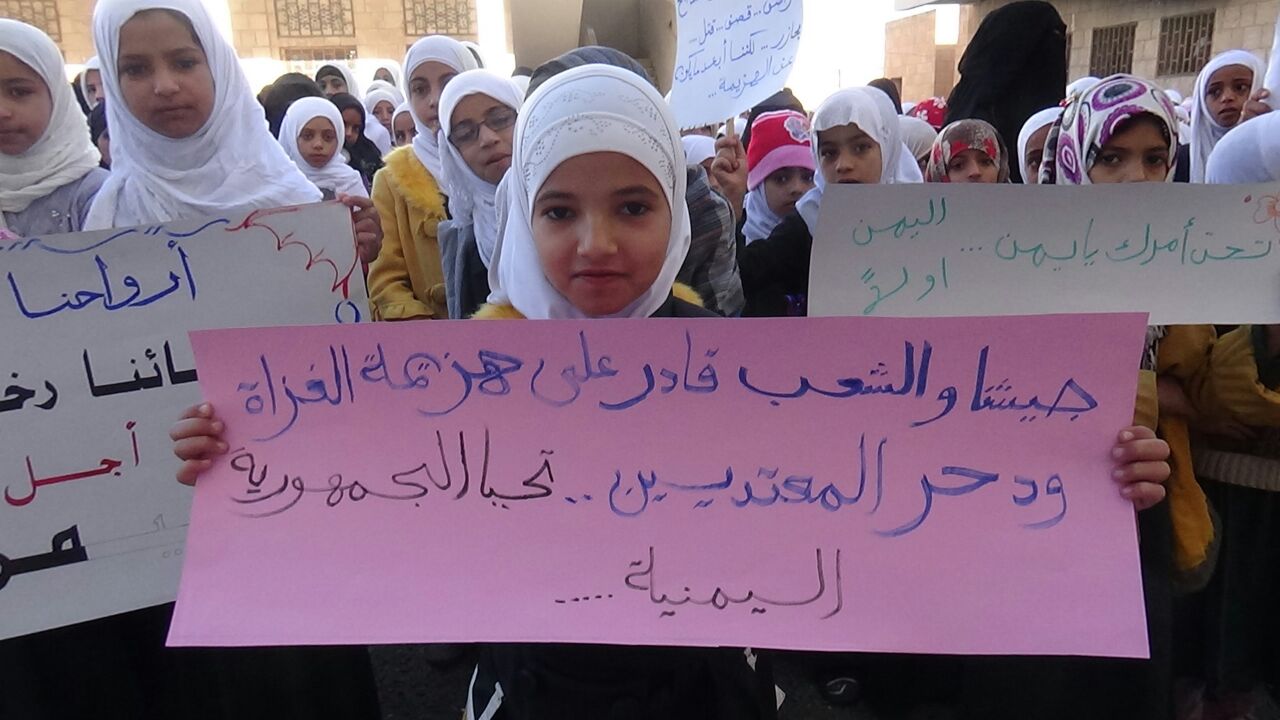 قصف... قتل...
مجازر... لكننا أبعد ما يكون
عن الهزيمة...
أرواحنا
أجل
تحت أمرك يا يمن... اليمن
اولاً
جيشنا والشعب قادر على هزيمة الغزاة
ودحر المعتديين.. تحيا الجمهورية
اليمنية.....